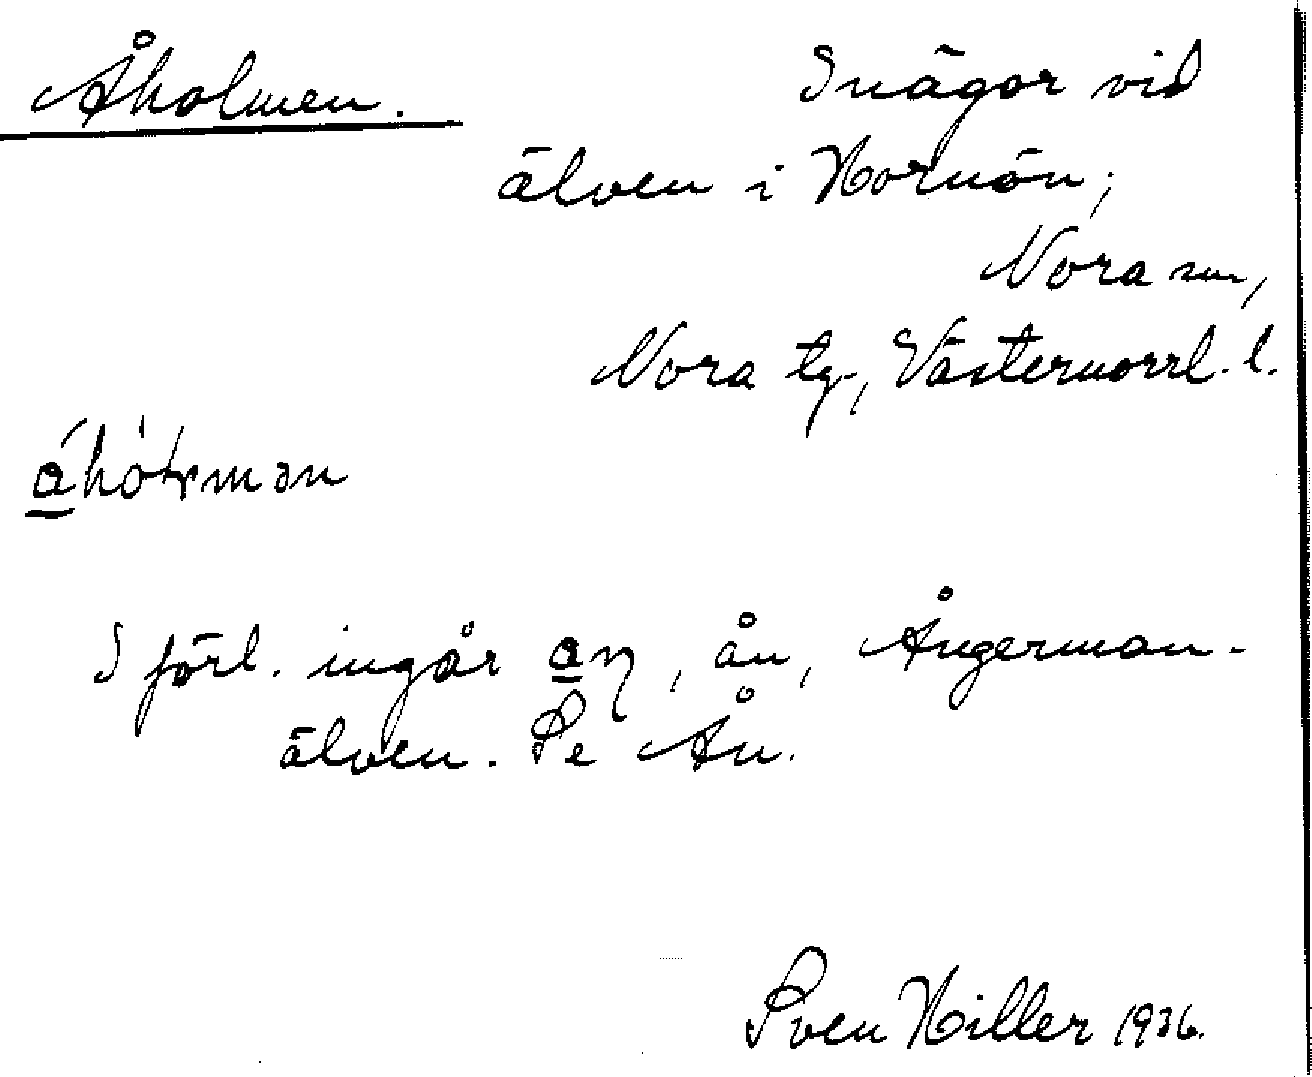 Åholmen.
Inägor vid
älven i Hornön;
Nora sn,
Nora tg., Västernorrl. l.
I förl. ingår , ån, Ångerman-
älven. Se Ån.
Sven Hiller 1936.